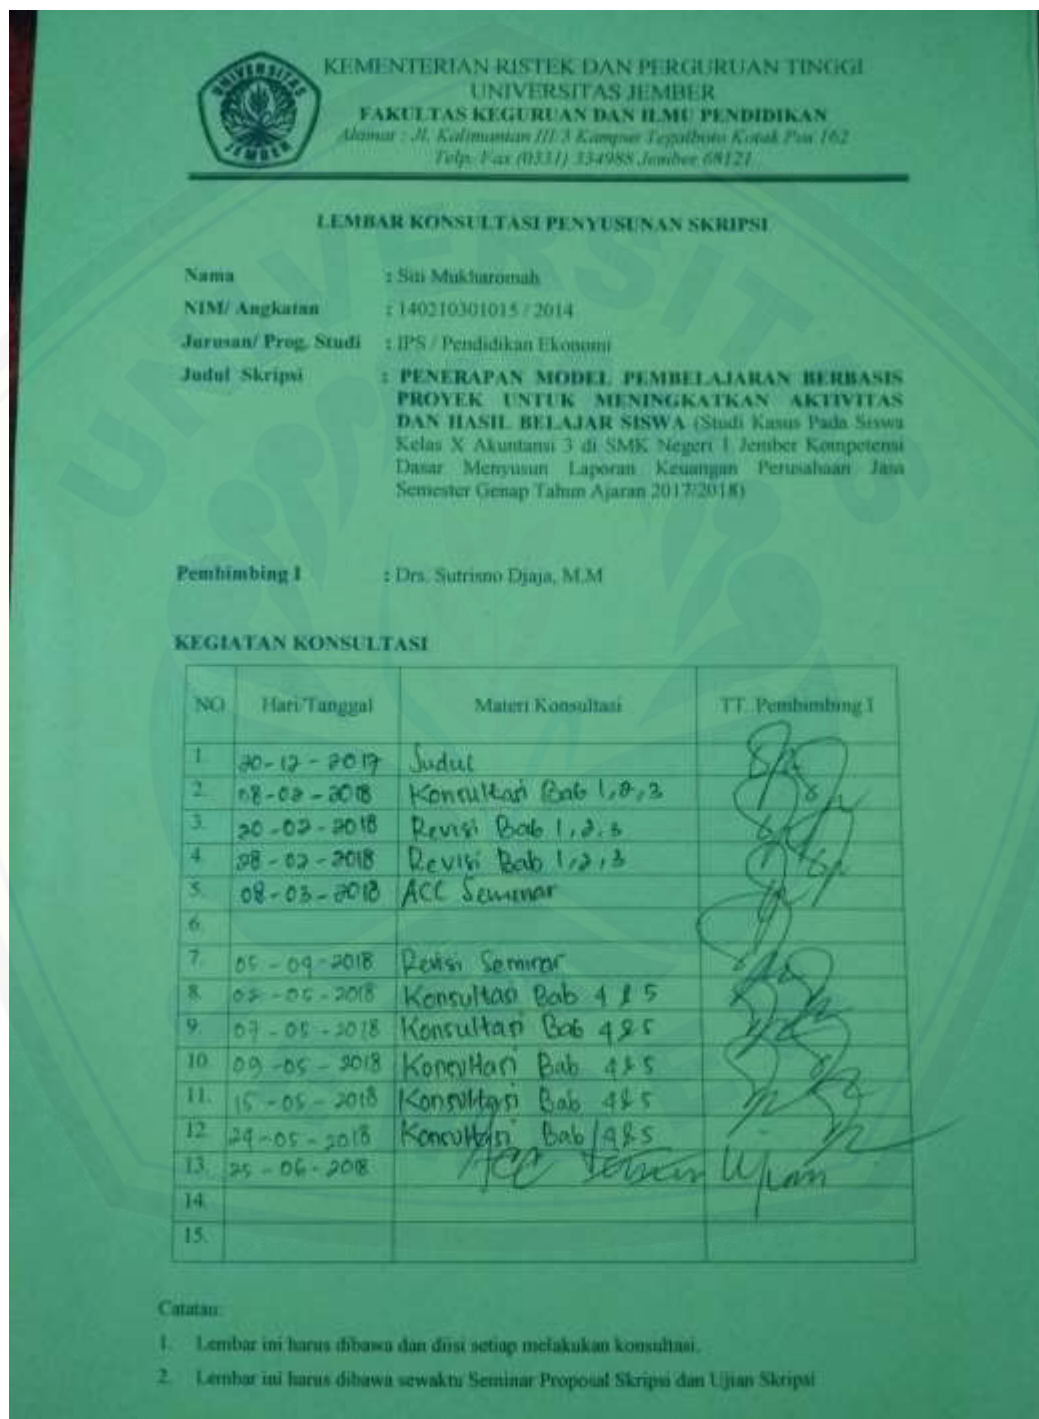 UNIVERSITAS
JEMBER
KEMENTERIAN RISTEK DAN PERGURUAN TINGGI
UNIVERSITAS JEMBER
FAKULTAS KEGURUAN DAN ILMU PENDIDIKAN
Alamat : Jl. Kalimantan III/3 Kampus Tegalboto Kotak Pos 162
Telp. Fax (0331) 334988 Jember 68121
LEMBAR KONSULTASI PENYUSUNAN SKRIPSI
Nama : Siti Mukharomah
NIM/ Angkatan : 140210301015 / 2014
Jurusan/ Prog. Studi : IPS / Pendidikan Ekonomi
Judul Skripsi : PENERAPAN MODEL PEMBELAJARAN BERBASIS
PROYEK UNTUK MENINGKATKAN AKTIVITAS
DAN HASIL BELAJAR SISWA (Studi Kasus Pada Siswa
Kelas X Akuntansi 3 di SMK Negeri 1 Jember Kompetensi
Dasar Menyusun Laporan Keuangan Perusahaan Jasa
Semester Genap Tahun Ajaran 2017/2018)
Pembimbing I : Drs. Sutrisno Djaja, M.M
KEGIATAN KONSULTASI
NO Hari/Tanggal Materi Konsultasi TT. Pembimbing I
1. 20-12-2017 Judul
2. 08-02-2018 Konsultasi Bab 1,2,3
3. 20-02-2018 Revisi Bab 1,2,3
4. 28-02-2018 Revisi Bab 1,2,3
5. 08-03-2018 ACC Seminar
6.
7. 05-04-2018 Revisi Seminar
8. 02-05-2018 Konsultasi Bab 4 & 5
9. 07-05-2018 Konsultasi Bab 4 & 5
10. 09-05-2018 Konsultasi Bab 4 & 5
11. 15-05-2018 Konsultasi Bab 4 & 5
12. 24-05-2018 Konsultasi Bab 4 & 5
13. 25-06-2018 ACC Ujian
14.
15.
Catatan:
1. Lembar ini harus dibawa dan diisi setiap melakukan konsultasi.
2. Lembar ini harus dibawa sewaktu Seminar Proposal Skripsi dan Ujian Skripsi
UNIVERSITAS